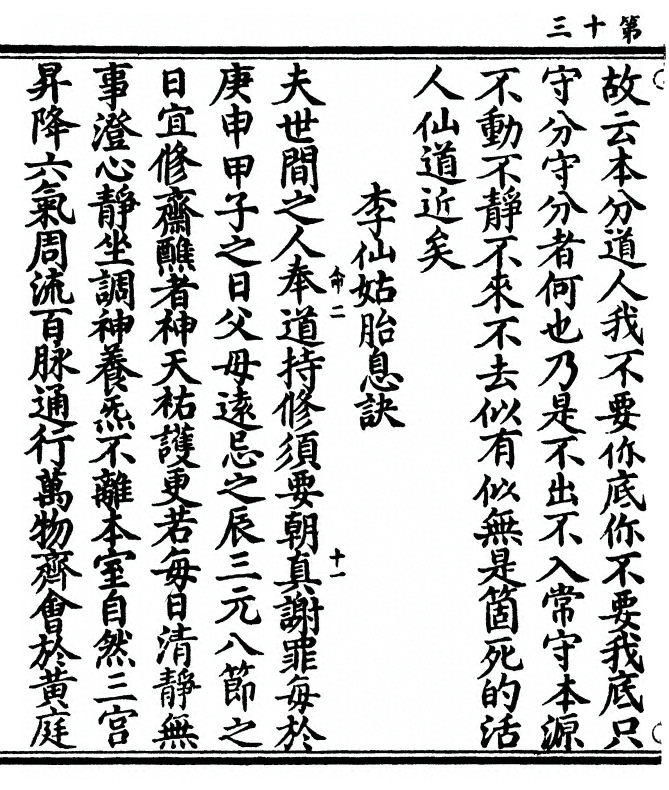 第十三
故云本分道人我不要你底你不要我底只
守分守分者何也乃是不出不入常守本源
不動不靜不來不去似有似無是箇死的活
人仙道近矣
李仙姑胎息訣
命二
十一
夫世間之人奉道持修須要朝真謝罪每於
庚申甲子之日父母遠忌之辰三元八節之
日宜修齋醮者神天祐護更若每日清靜無
事澄心靜坐調神養炁不離本室自然三宮
昇降六氣周流百脉通行萬物齊會於黃庭